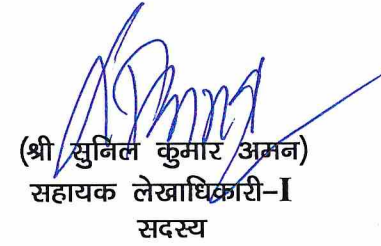 (श्री सुनिल कुमार अमन)
सहायक लेखाधिकारी–I
सदस्य